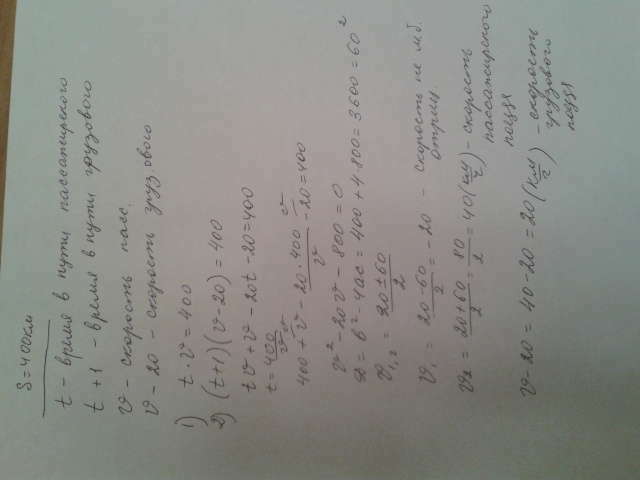 S=400км
t - время в пути пассажирского
t + 1 - время в пути грузового
v - скорость пасс.
v - 20 - скорость груз.ового
1) t · v = 400
2) (t+1)(v-20) = 400
tv + v - 20t - 20 = 400
t = 400/v
400 + v - 20·400/v - 20 = 400
v² - 20v - 800 = 0
D = b² - 4ac = 400 + 4·800 = 3600 = 60²
v₁,₂ = (20 ± 60)/2
v₁ = (20-60)/2 = -20 - скорость не м.б. отриц.
v₂ = (20+60)/2 = 80/2 = 40 (км/ч) - скорость пассажирского поезда
v - 20 = 40 - 20 = 20 (км/ч) - скорость грузового поезда